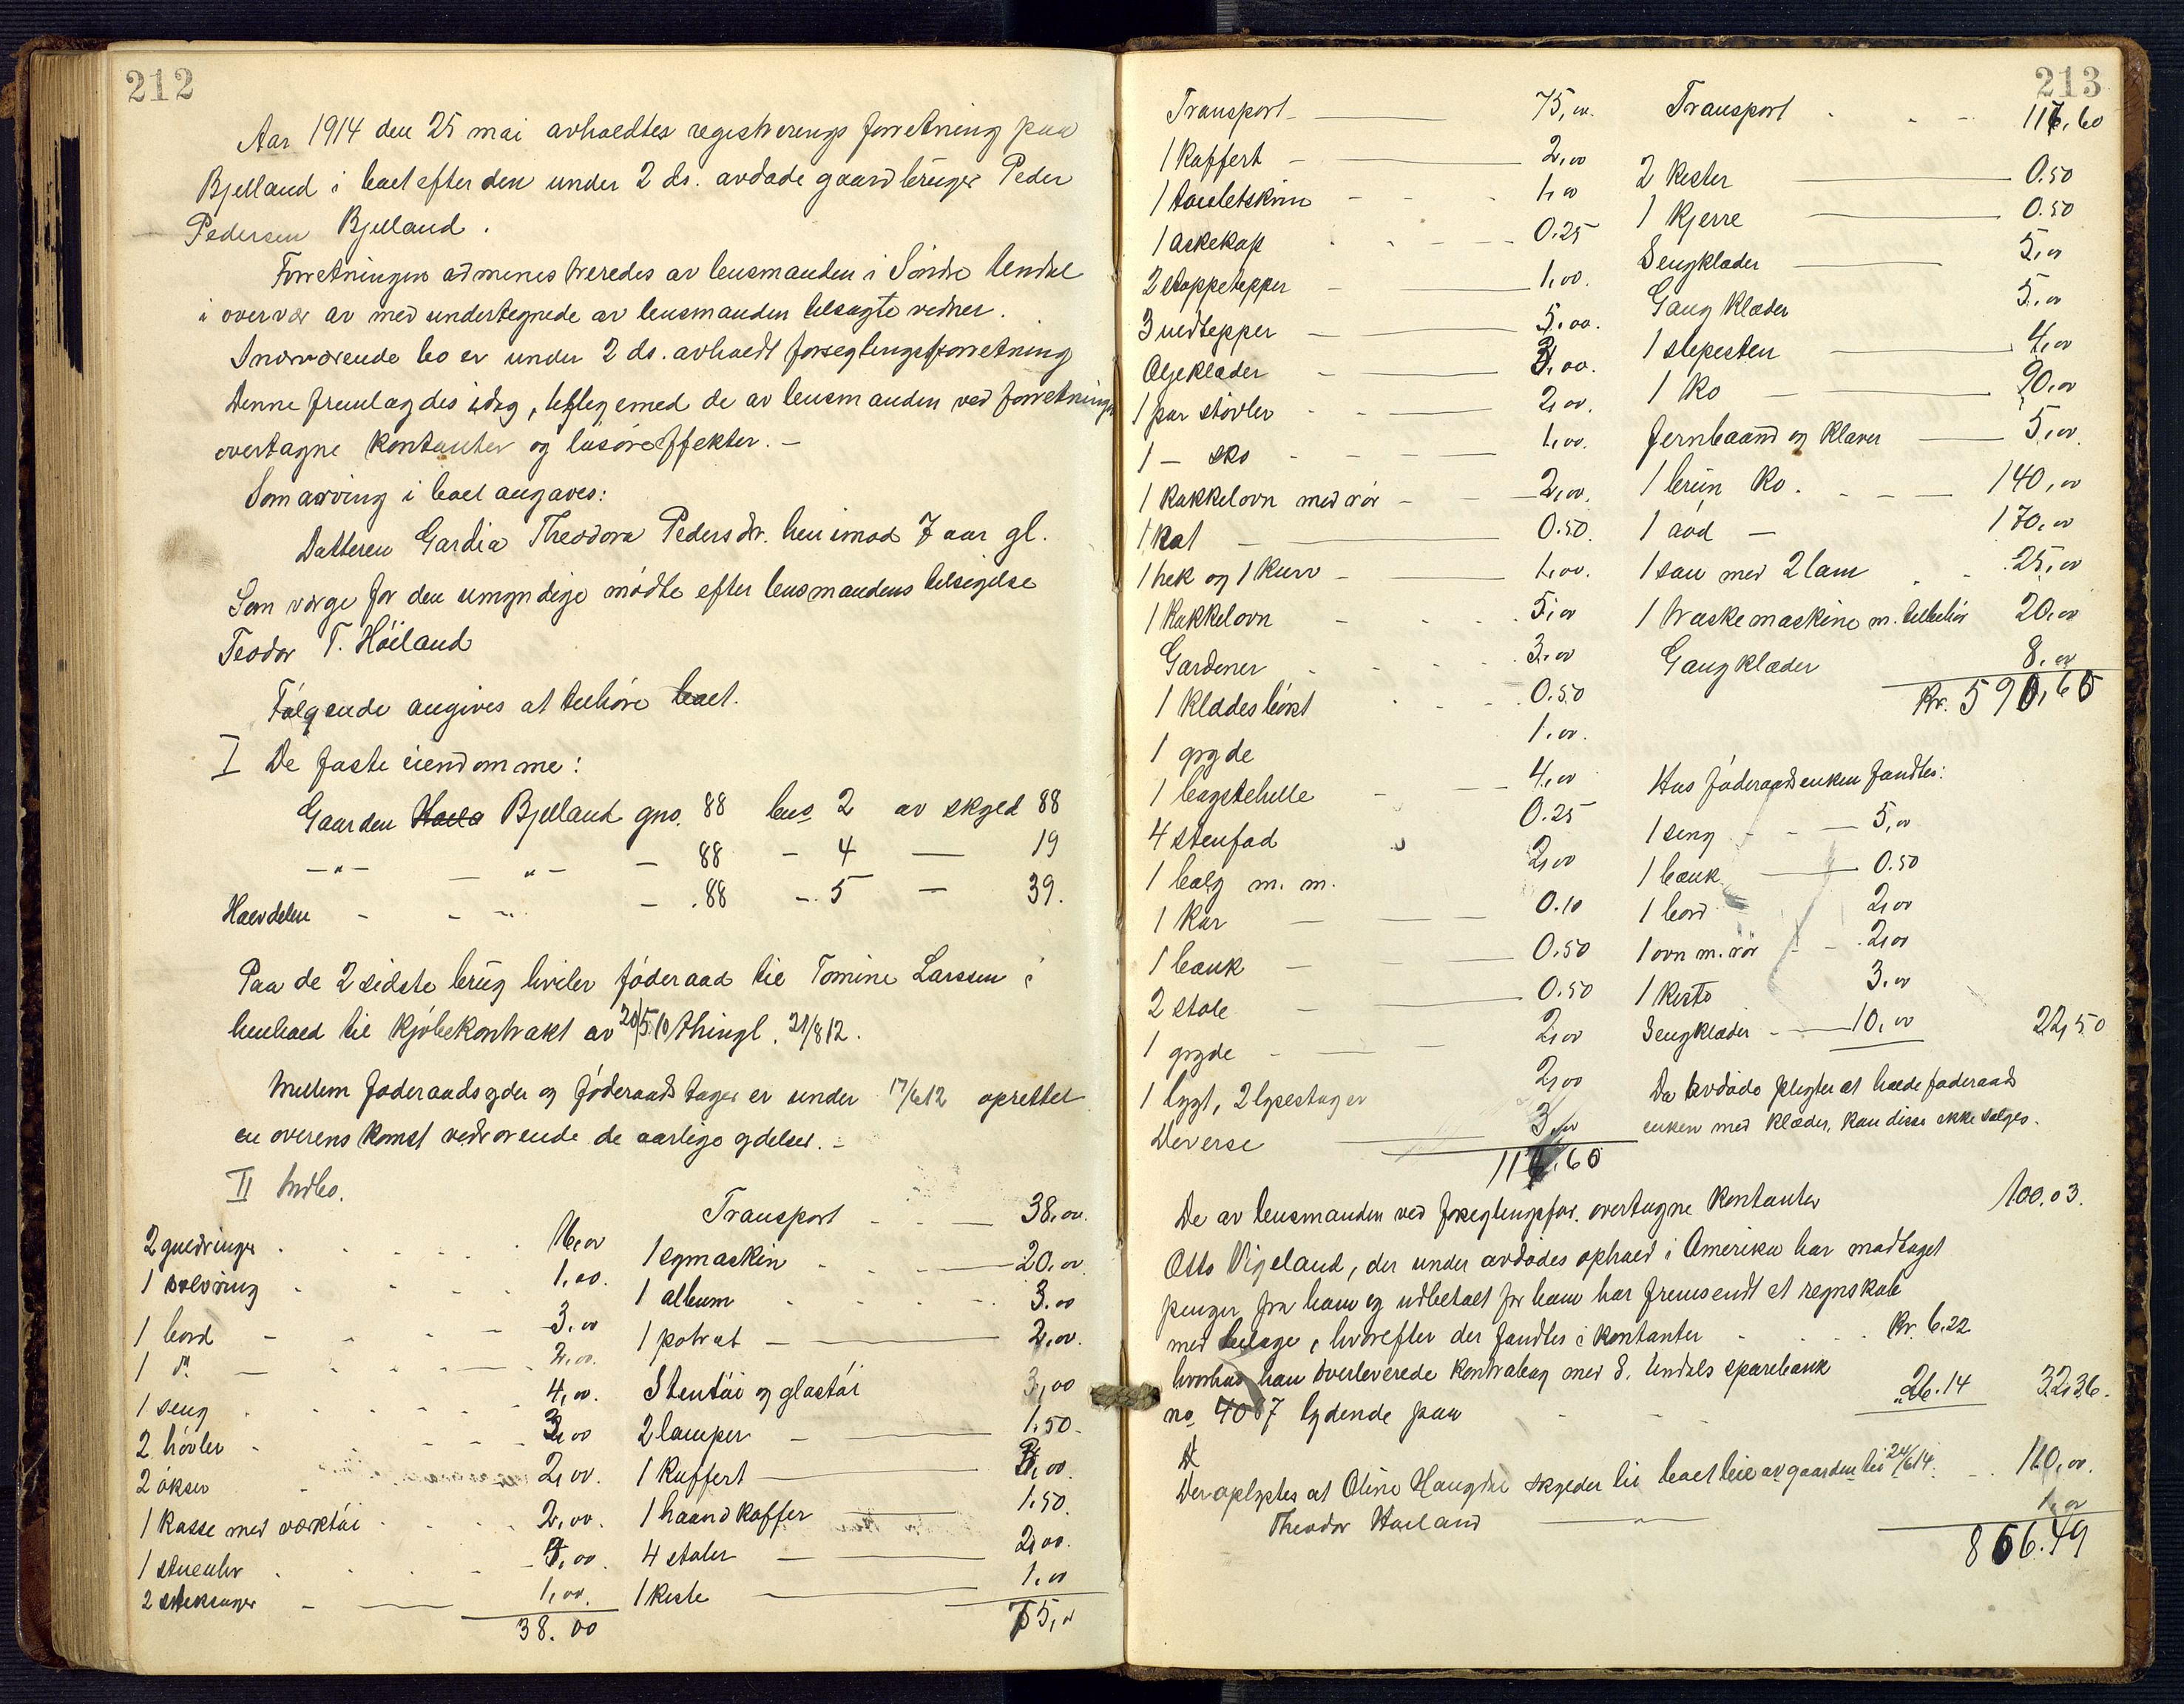 212
Aar 1914 den 25 mai avholdtes registrerings forretning paa
Bjelland i boet efter den under 2 ds. avdøde gaardbruger Peder
Pedersen Bjelland.
Forretningen administreredes av lensmanden i Søndre Undal
i overvær av med undertegnede av lensmanden tilsagte vidner.
I nærværende bo er under 2 ds. avholdt forseglingsforretning
Denne fremlagdes idag, tillegemed de av lensmanden ved forretningen
overtagne kontanter og løsøreeffekter. –
Som arving i boet angaves:
Datteren Gardia Theodora Pedersdr. henimod 7 aar gl.
Som værge for den umyndige mødte efter lensmandens tilsigelse
Teodor T. Høiland
Følgende angives at tilhøre boet.
I De faste eiendomme:
Gaarden Bjelland gno. 88 bno 2 av skyld 88
—"— — "— — 88 — 4 — 19
— " — 88 — 5 — 39.
Paa de 2 sidste brug hviler føderaad til Tomine Larssen i
henhold til kjøbekontrakt av 20/5 10 thingl. 21/8 12.
Mellem føderaadsyder og føderaadstager er under 17/6 12 oprettet
en overenskomst vedrørende de aarlige ydelser. –
II Indbo.
2 guldringer 16,00
1 sølvring 1,00.
1 bord 3,00
1 do. 2,00.
1 seng 4,00.
2 høvler 3,00
2 økser 2,00.
1 kasse med værktøi 2,00.
1 stueuhr 4,00.
2 1,00.
38.00
Transport 38,00.
1 symaskin 20,00.
1 album 3.00
1 potræt 2,00.
Stentøi og glastøi 3,00
2 lamper 1.50.
1 kuffert 3,00.
1 haandkoffer 1.50.
4 stoler 2,00.
1 kiste 1,00
75,00
213
Transport 75,00.
1 koffert 2,00
1 toiletskrin 1,00
1 askekop 0.25
2 stoppetepper 1,00.
3 uldtepper 5,00.
Oljeklæder 3,00.
1 par støvler 2,00.
1 — sko 1,00.
1 kakkelovn med rør 2,00.
1 kat 0.50.
1 hek og 1 kurv 1,00.
1 kakkelovn 5,00
Gardener 3,00
1 klædesbørst 0.50
1 gryde 1.00.
1 bagstehelle 4,00
4 stenfad 0.25
1 balg m. m. 2,00
1 kar 0.10
1 bænk 0.50
2 stole 0.50
1 gryde 2,00
1 lygt, 2 lysestager 2,00
Diverse 3,00
116.60
Transport 116,60
2 kister 0.50
1 kjerre 0.50
Sengklæder 5,00
Gangklæder 5,00
1 slipesten 4,00
1 ko 90,00
Jernbaand og klaver 5,00.
1 brun ko. 140,00
1 rød — 170,00
1 sau med 2 lam 25,00
1 traskemaskine m. tilbehør 20,00
Gangklæder 8,00
Kr. 590,60
Hos føderaadsenken fandtes:
1 seng 5,00
1 bænk 0.50
1 bord 2,00
1 ovn m. rør 2,00
1 kiste 3,00
Sengklæder 10,00 22,50
Da avdøde pligter at holde føderaads
enken med klæder, kan disse ikke sælges.
De av lensmanden ved forseglingsfor. overtagne kontanter 100.03.
Otto Vigeland, der under avdødes ophold i Amerika har modtaget
penger fra ham og udbetalt for ham har fremsendt et regnskab
med bilage, hvorefter der fandtes i kontanter Kr. 6.22
hvorhos han overleverede kontrabog med S. Undals sparebank
no. 4087 lydende paa " 26.14 32,36.
Der oplystes at Oline Haugdal skylder til boet leie av gaarden til 24/6 14. 120,00.
Theodor Høiland —"— 1,00
866.49